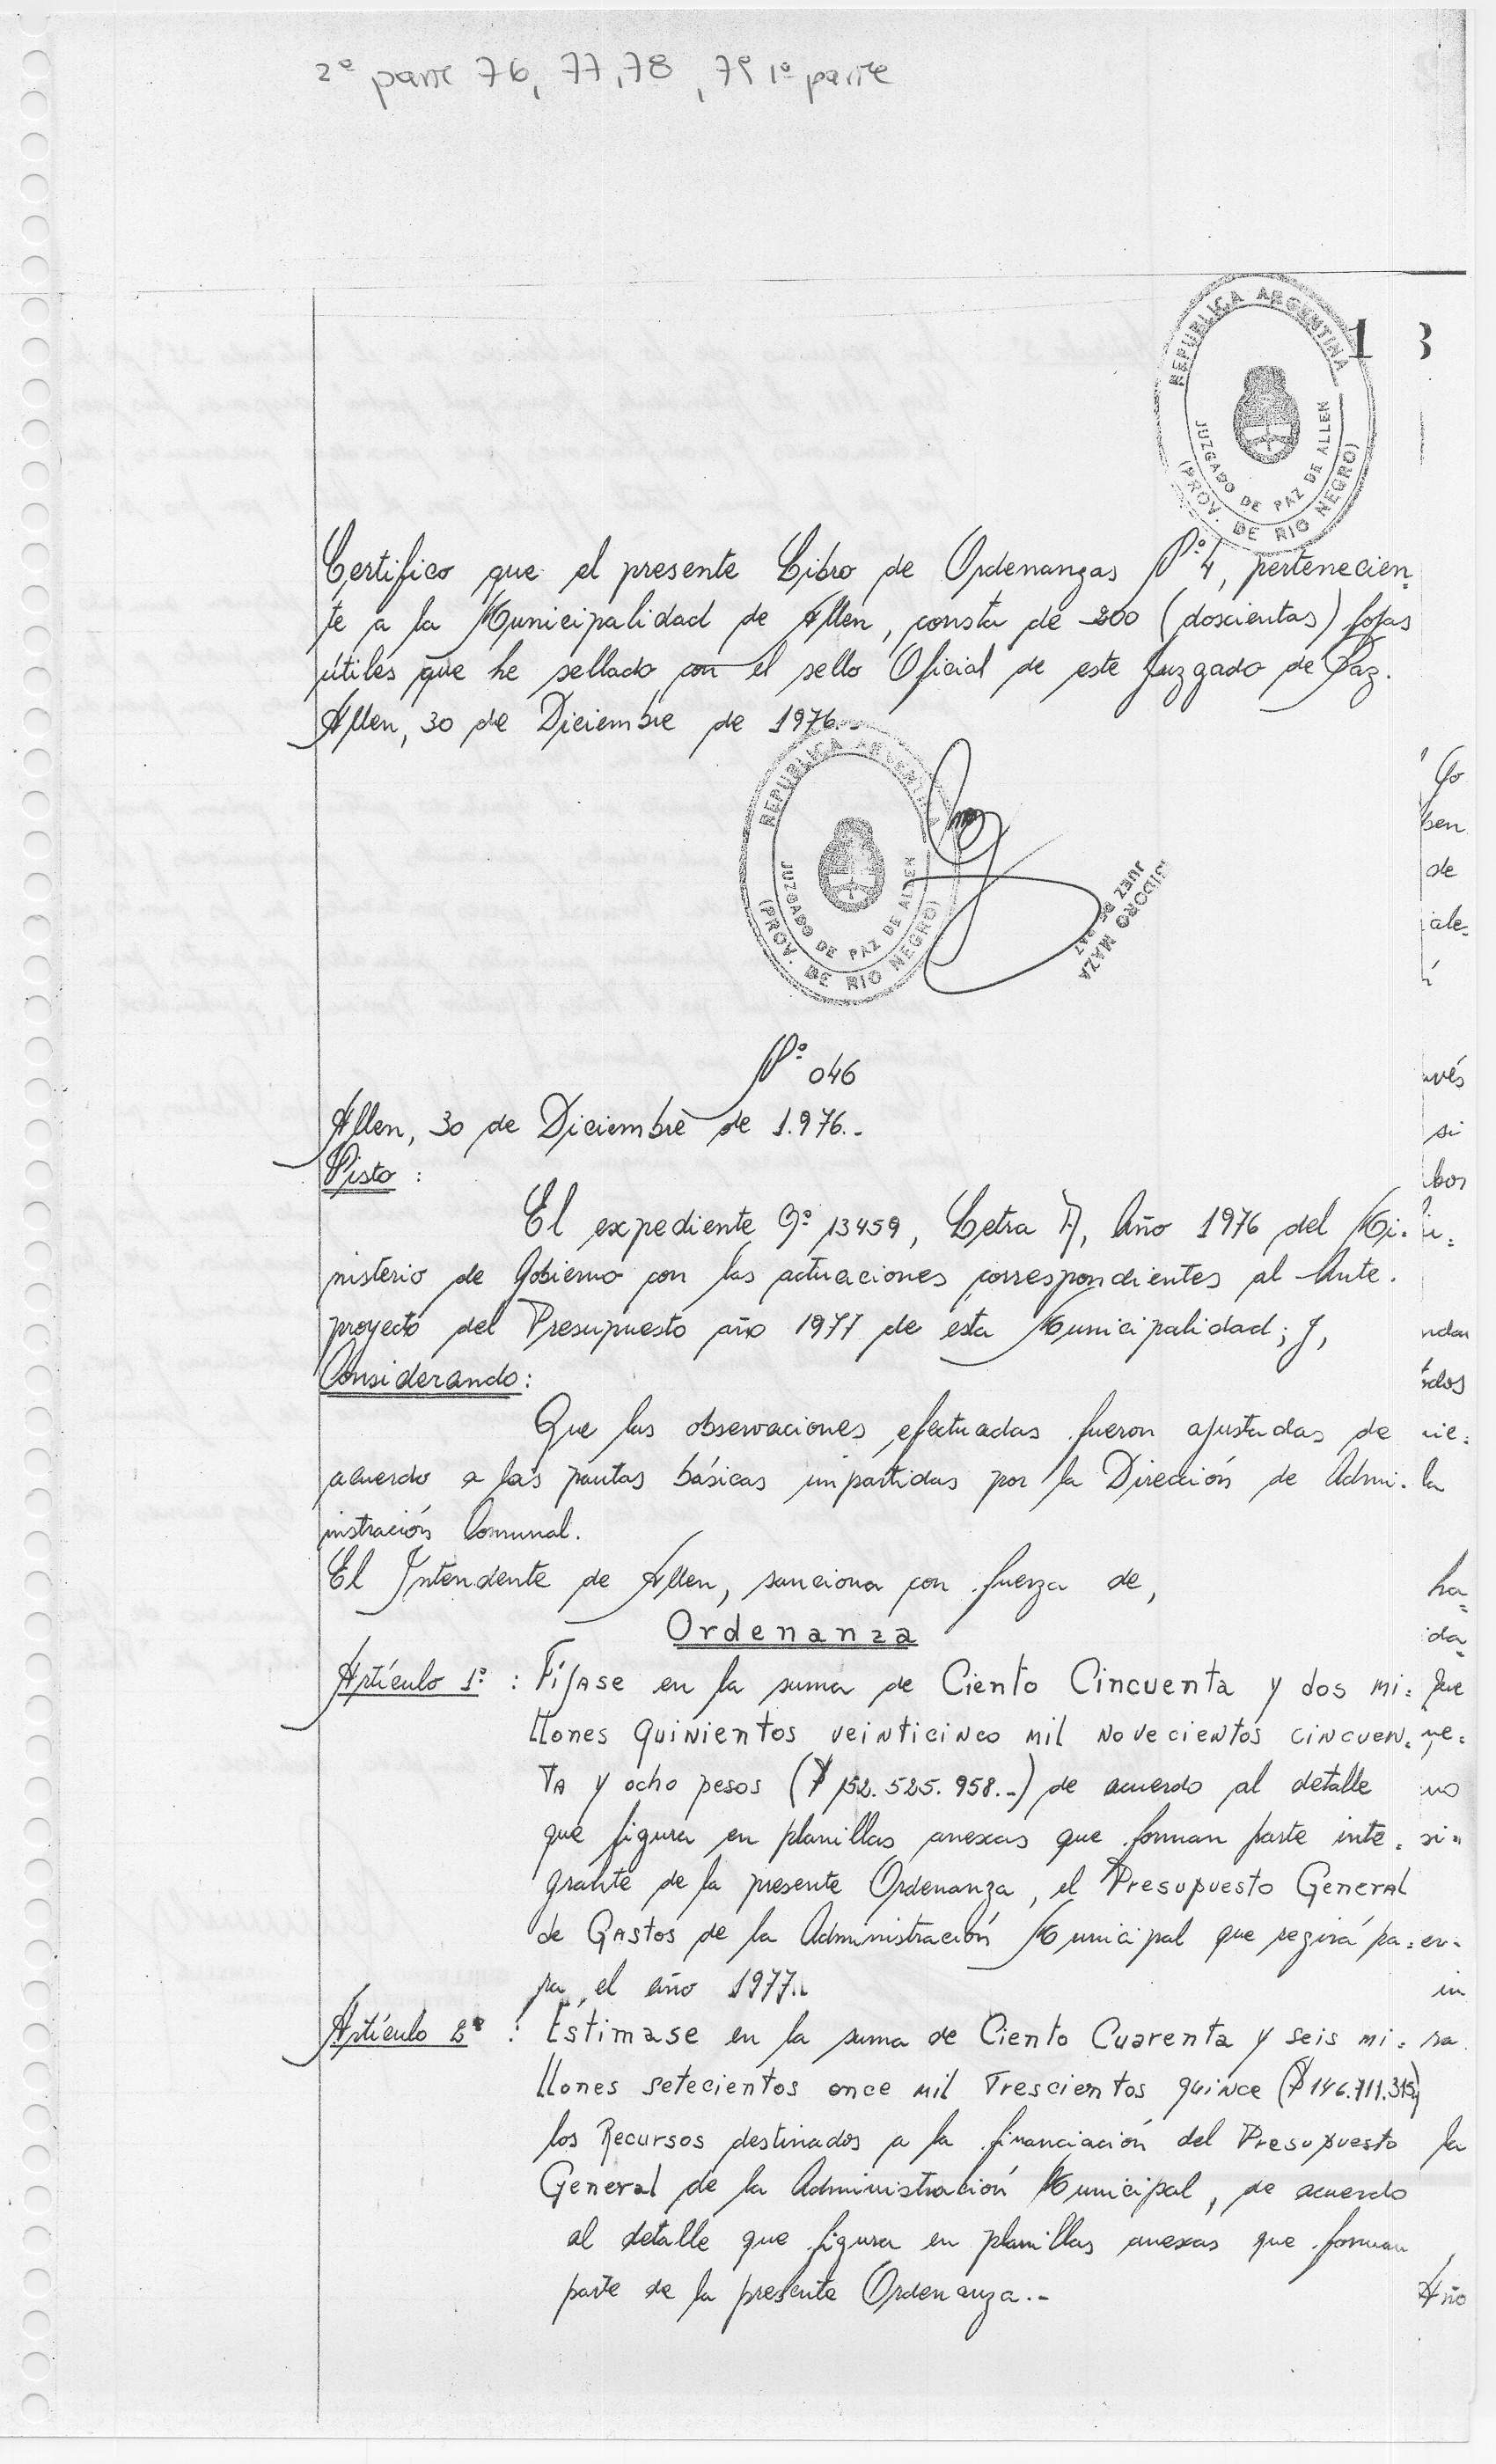 2º parte 76, 77, 78, 79 1º parte
REPUBLICA ARGENTINA
JUZGADO DE PAZ DE ALLEN
(PROV. DE RIO NEGRO)
1 3
Certifico que el presente Libro de Ordenanzas Nº 4, pertenecien=
te a la Municipalidad de Allen, consta de 200 (doscientas) fojas
útiles que he sellado con el sello Oficial de este Juzgado de Paz.
Allen, 30 de Diciembre de 1976.-
REPUBLICA ARGENTINA
JUZGADO DE PAZ DE ALLEN
(PROV. DE RIO NEGRO)
ISIDORO MAZA
JUEZ DE PAZ
Nº 046
Allen, 30 de Diciembre de 1.976.-
Visto :
El expediente Nº 13459, Letra A, Año 1976 del Mi-
nisterio de Gobierno con las actuaciones correspondientes al Ante-
proyecto del Presupuesto año 1977 de esta Municipalidad; y,
Considerando:
Que las observaciones efectuadas fueron ajustadas de
acuerdo a las pautas básicas impartidas por la Dirección de Admi-
nistración Comunal.
El Intendente de Allen, sanciona con fuerza de,
Ordenanza
Artículo 1º : Fíjase en la suma de Ciento Cincuenta y dos mi=
llones quinientos veinticinco mil novecientos cincuen=
ta y ocho pesos ($ 152.525.958.-) de acuerdo al detalle
que figura en planillas anexas que forman parte inte=
grante de la presente Ordenanza, el Presupuesto General
de Gastos de la Administración Municipal que regirá pa=
ra el año 1977.-
Artículo 2º : Estímase en la suma de Ciento Cuarenta y seis mi=
llones setecientos once mil trescientos quince ($ 146.711.315)
los Recursos destinados a la financiación del Presupuesto
General de la Administración Municipal, de acuerdo
al detalle que figura en planillas anexas que forman
parte de la presente Ordenanza.-
go
ben
de
ale=
vés
si
bos
ndar
ados
cie=
la
ha=
da=
que
ne=
no
si=
en=
in
ra
la
Año